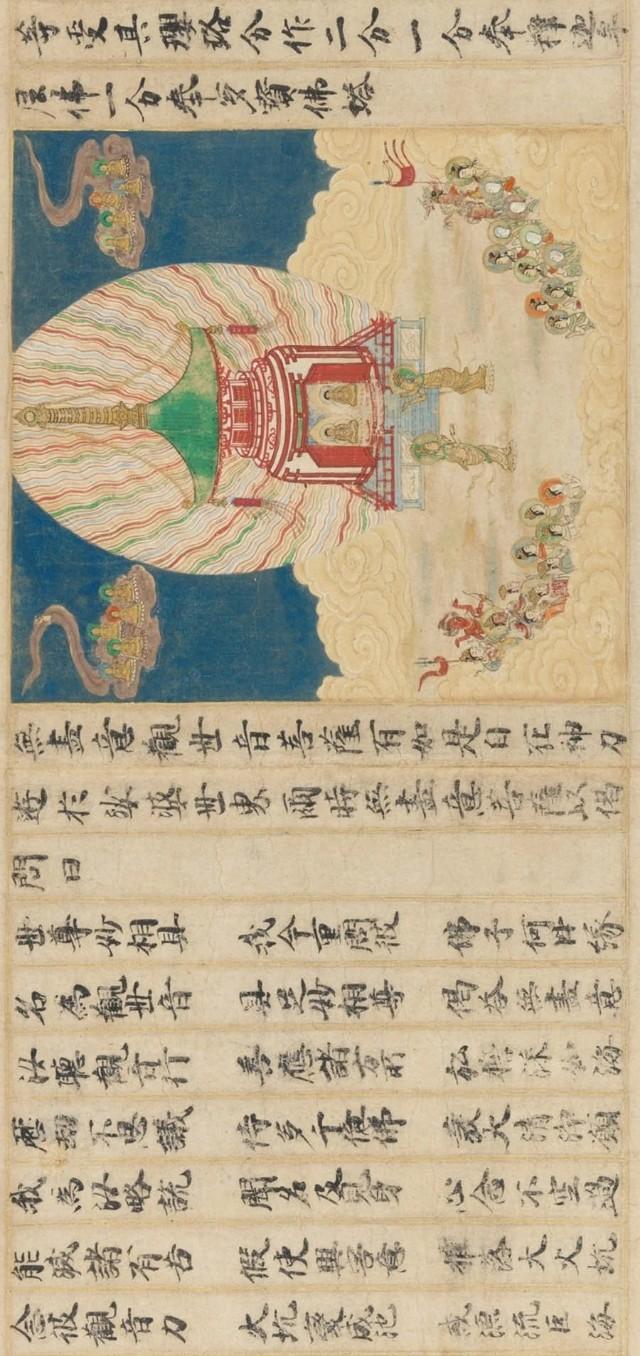 尊受其瓔珞分作二分一分奉釋迦牟
尼佛一分奉多寶佛塔
無盡意觀世音菩薩有如是自在神力
遊於娑婆世界爾時無盡意菩薩以偈
問曰
世尊妙相具 我今重問彼 佛子何因緣
名為觀世音 具足妙相尊 偈答無盡意
汝聽觀音行 善應諸方所 弘誓深如海
歷劫不思議 侍多千億佛 發大清淨願
我為汝略說 聞名及見身 心念不空過
能滅諸有苦 假使興害意 推落大火坑
念彼觀音力 火坑變成池 或漂流巨海